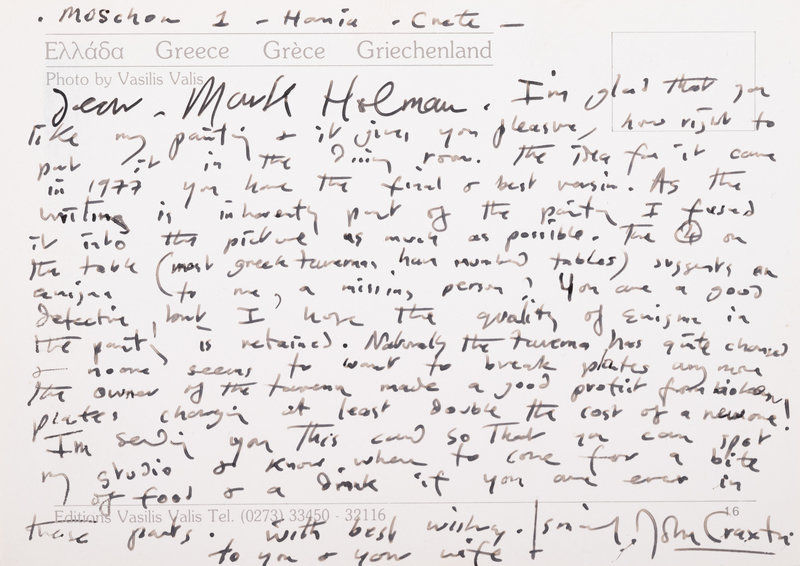 . Moschon 1 - Hania . Crete -
Ελλάδα Greece Grèce Griechenland
Photo by Vasilis Valis
Dear . Mark Holman . I'm glad that you
like my painting & it gives you pleasure, how right to
put it in the Dining room. The idea for it came
in 1977 you have the final & best version. As the
writing is inherently part of the painting I fused
it into the picture as much as possible. The 4 on
the table (most greek tavernas have numbered tables) suggests an
enigma (to me, a missing person) You are a good
detective, but I hope the quality of enigma in
the painting is retained. Naturally the taverna has quite changed
& no one seems to want to break plates any more
the owner of the taverna made a good profit from broken
plates charging at least double the cost of a new one!
I'm sending you this card so that you can spot
my studio & know where to come for a bite
of food & a drink if you are ever in
Editions Vasilis Valis Tel. (0273) 33450 - 32116
16
these parts. With best wishes. John Craxton
to you & your wife